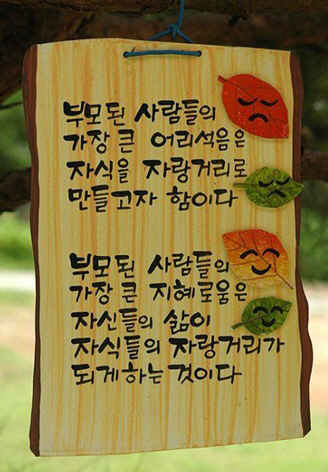 부모된 사람들의
가장 큰 어리석음은
자식을 자랑거리로
만들고자 함이다
부모된 사람들의
가장 큰 지혜로움은
자신들의 삶이
자식들의 자랑거리가
되게하는 것이다